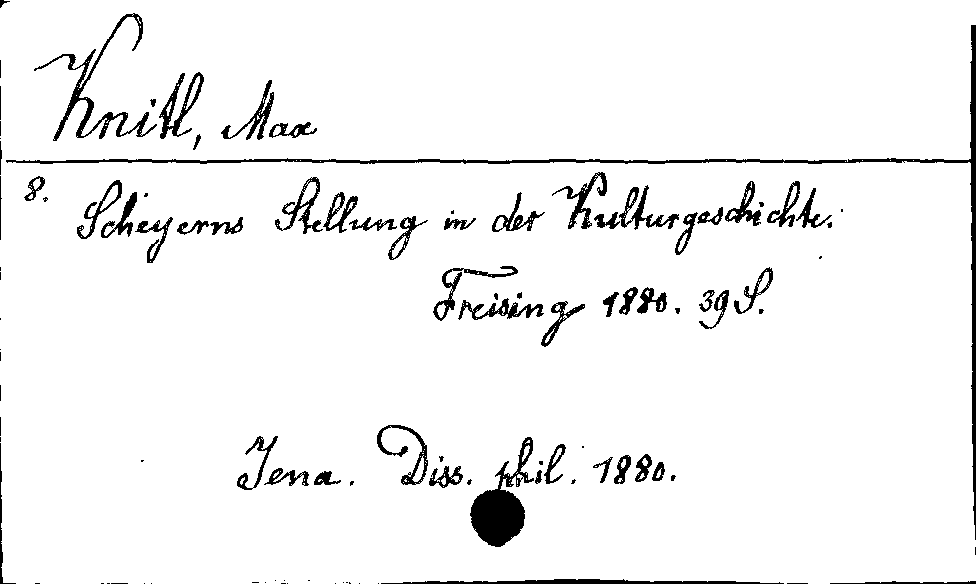 Knitl, Max
8. Scheyerns Stellung in der Kulturgeschichte.
Freising 1880. 39 S.
Jena. Diss. phil. 1880.